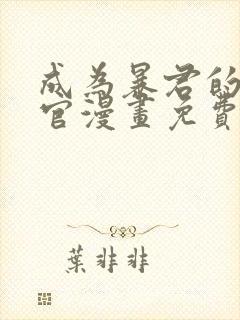 成為暴君的
官漫畫免費
葉非非